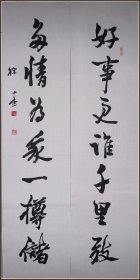 好事更谁千里致
多情为我一樽储